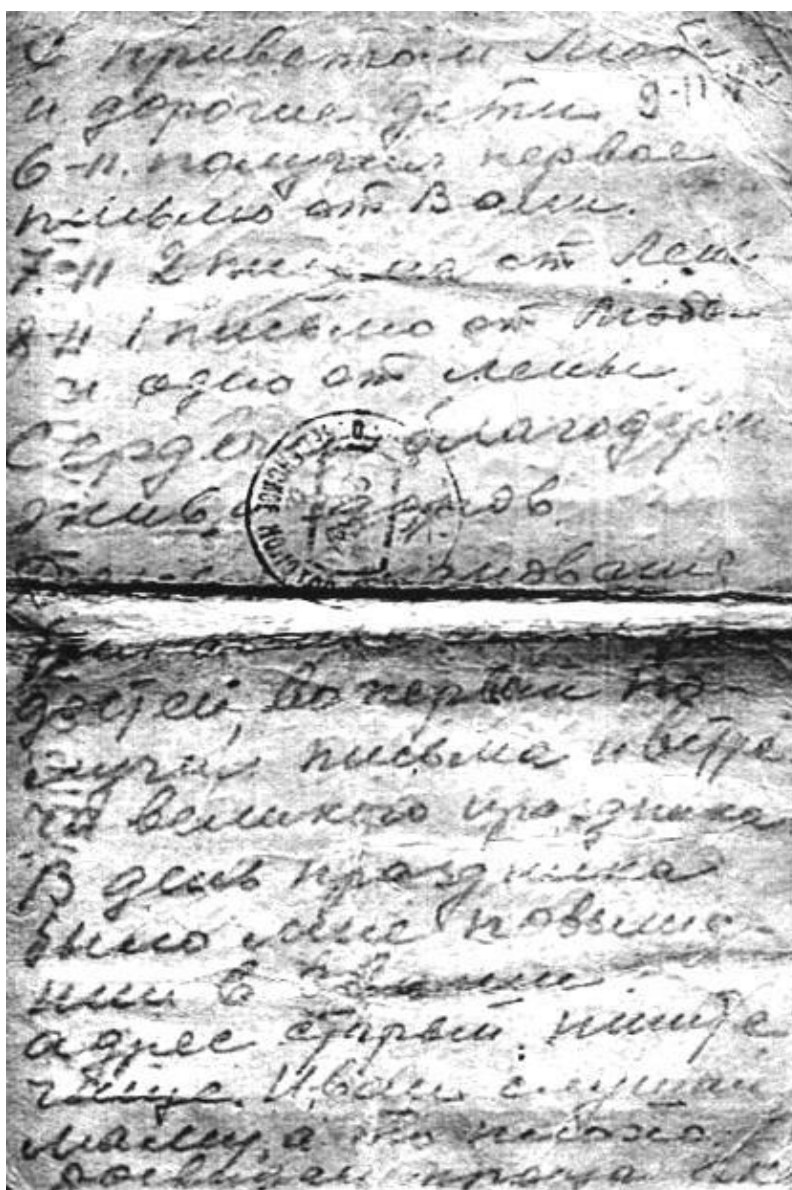 С приветом Люба
и дорогие дети 9-11
6-11. получил первое
письмо от Вали.
7-11 2 письма от Лены
8-11 1 письмо от Любы
и одно от Лены
Сердечно благодарен
жив, здоров.
достей, во первых по-
лучил письма и встре
ча великого праздника
В день праздника
было мне повыше-
нии в звании
адрес старый, пишите
чаще. Иван слушай
маму, а то плохо.